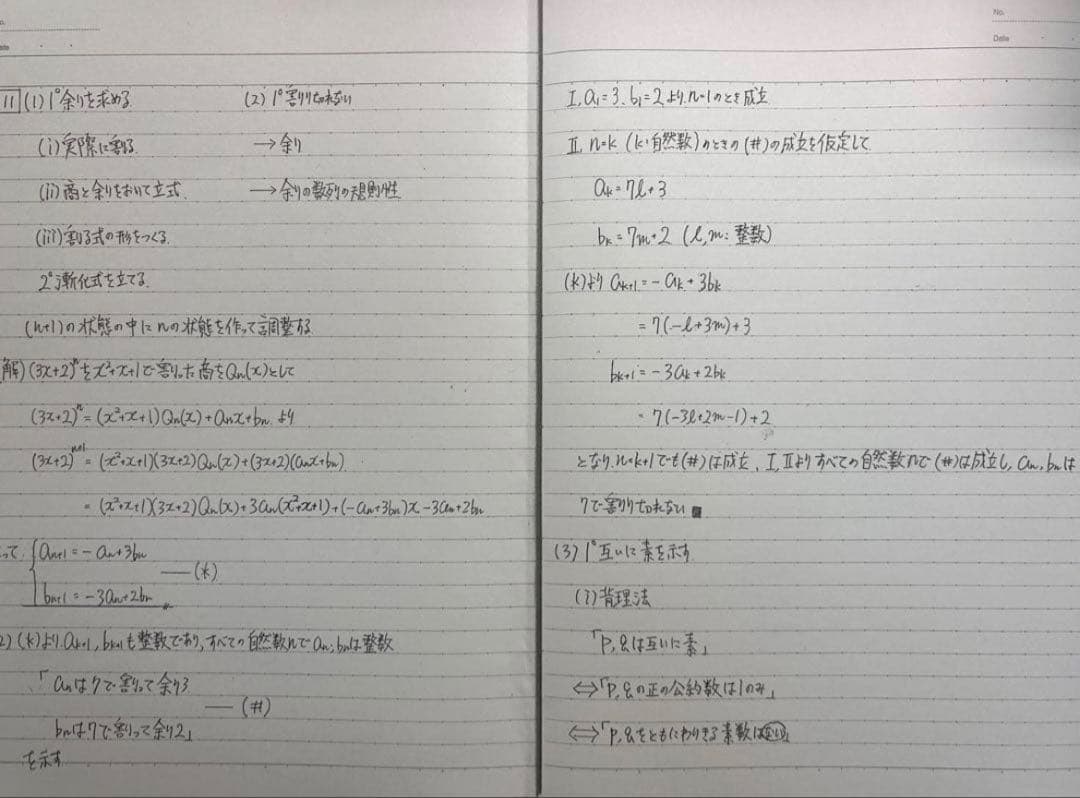 o.
ate
11 (1) 1° 余りを求める (2) 1° 割り切れない
(i) 実際に割る → 余り
(ii) 商と余りをおいて立式. → 余りの数列の規則性
(iii) 割る式の形をつくる.
2° 漸化式を立てる.
(n+1)の状態の中にnの状態を作って調整する
解) (3x+2)^nをx²+x+1で割った商をQn(x)として
(3x+2)^n = (x²+x+1)Qn(x)+anx+bn より
(3x+2)^{n+1} = (x²+x+1)(3x+2)Qn(x)+(3x+2)(anx+bn)
= (x²+x+1)(3x+2)Qn(x)+3an(x²+x+1)+(-an+3bn)x-3an+2bn
って { an+1 = -an+3bn
—(*)
bn+1 = -3an+2bn 〃
2) (*)より. ak+1, bk+1も整数であり, すべての自然数nでan, bnは整数
「anは7で割って余り3
—(#)
bnは7で割って余り2」
を示す
No.
Date
I, a1=3, b1=2より, n=1のとき成立
II, n=k (k:自然数)のときの(#)の成立を仮定して
ak = 7l+3
bk = 7m+2 (l,m: 整数)
(*)より ak+1 = -ak+3bk
= 7(-l+3m)+3
bk+1 = -3ak+2bk
= 7(-3l+2m-1)+2
となり, n=k+1でも(#)は成立, I, IIよりすべての自然数nで(#)は成立し, an, bnは
7で割り切れない ■
(3) 1° 互いに素を示す
(i) 背理法
「p, qは互いに素」
⇔「p, qの正の公約数は1のみ」
⇔「p, qをともにわりきる素数は